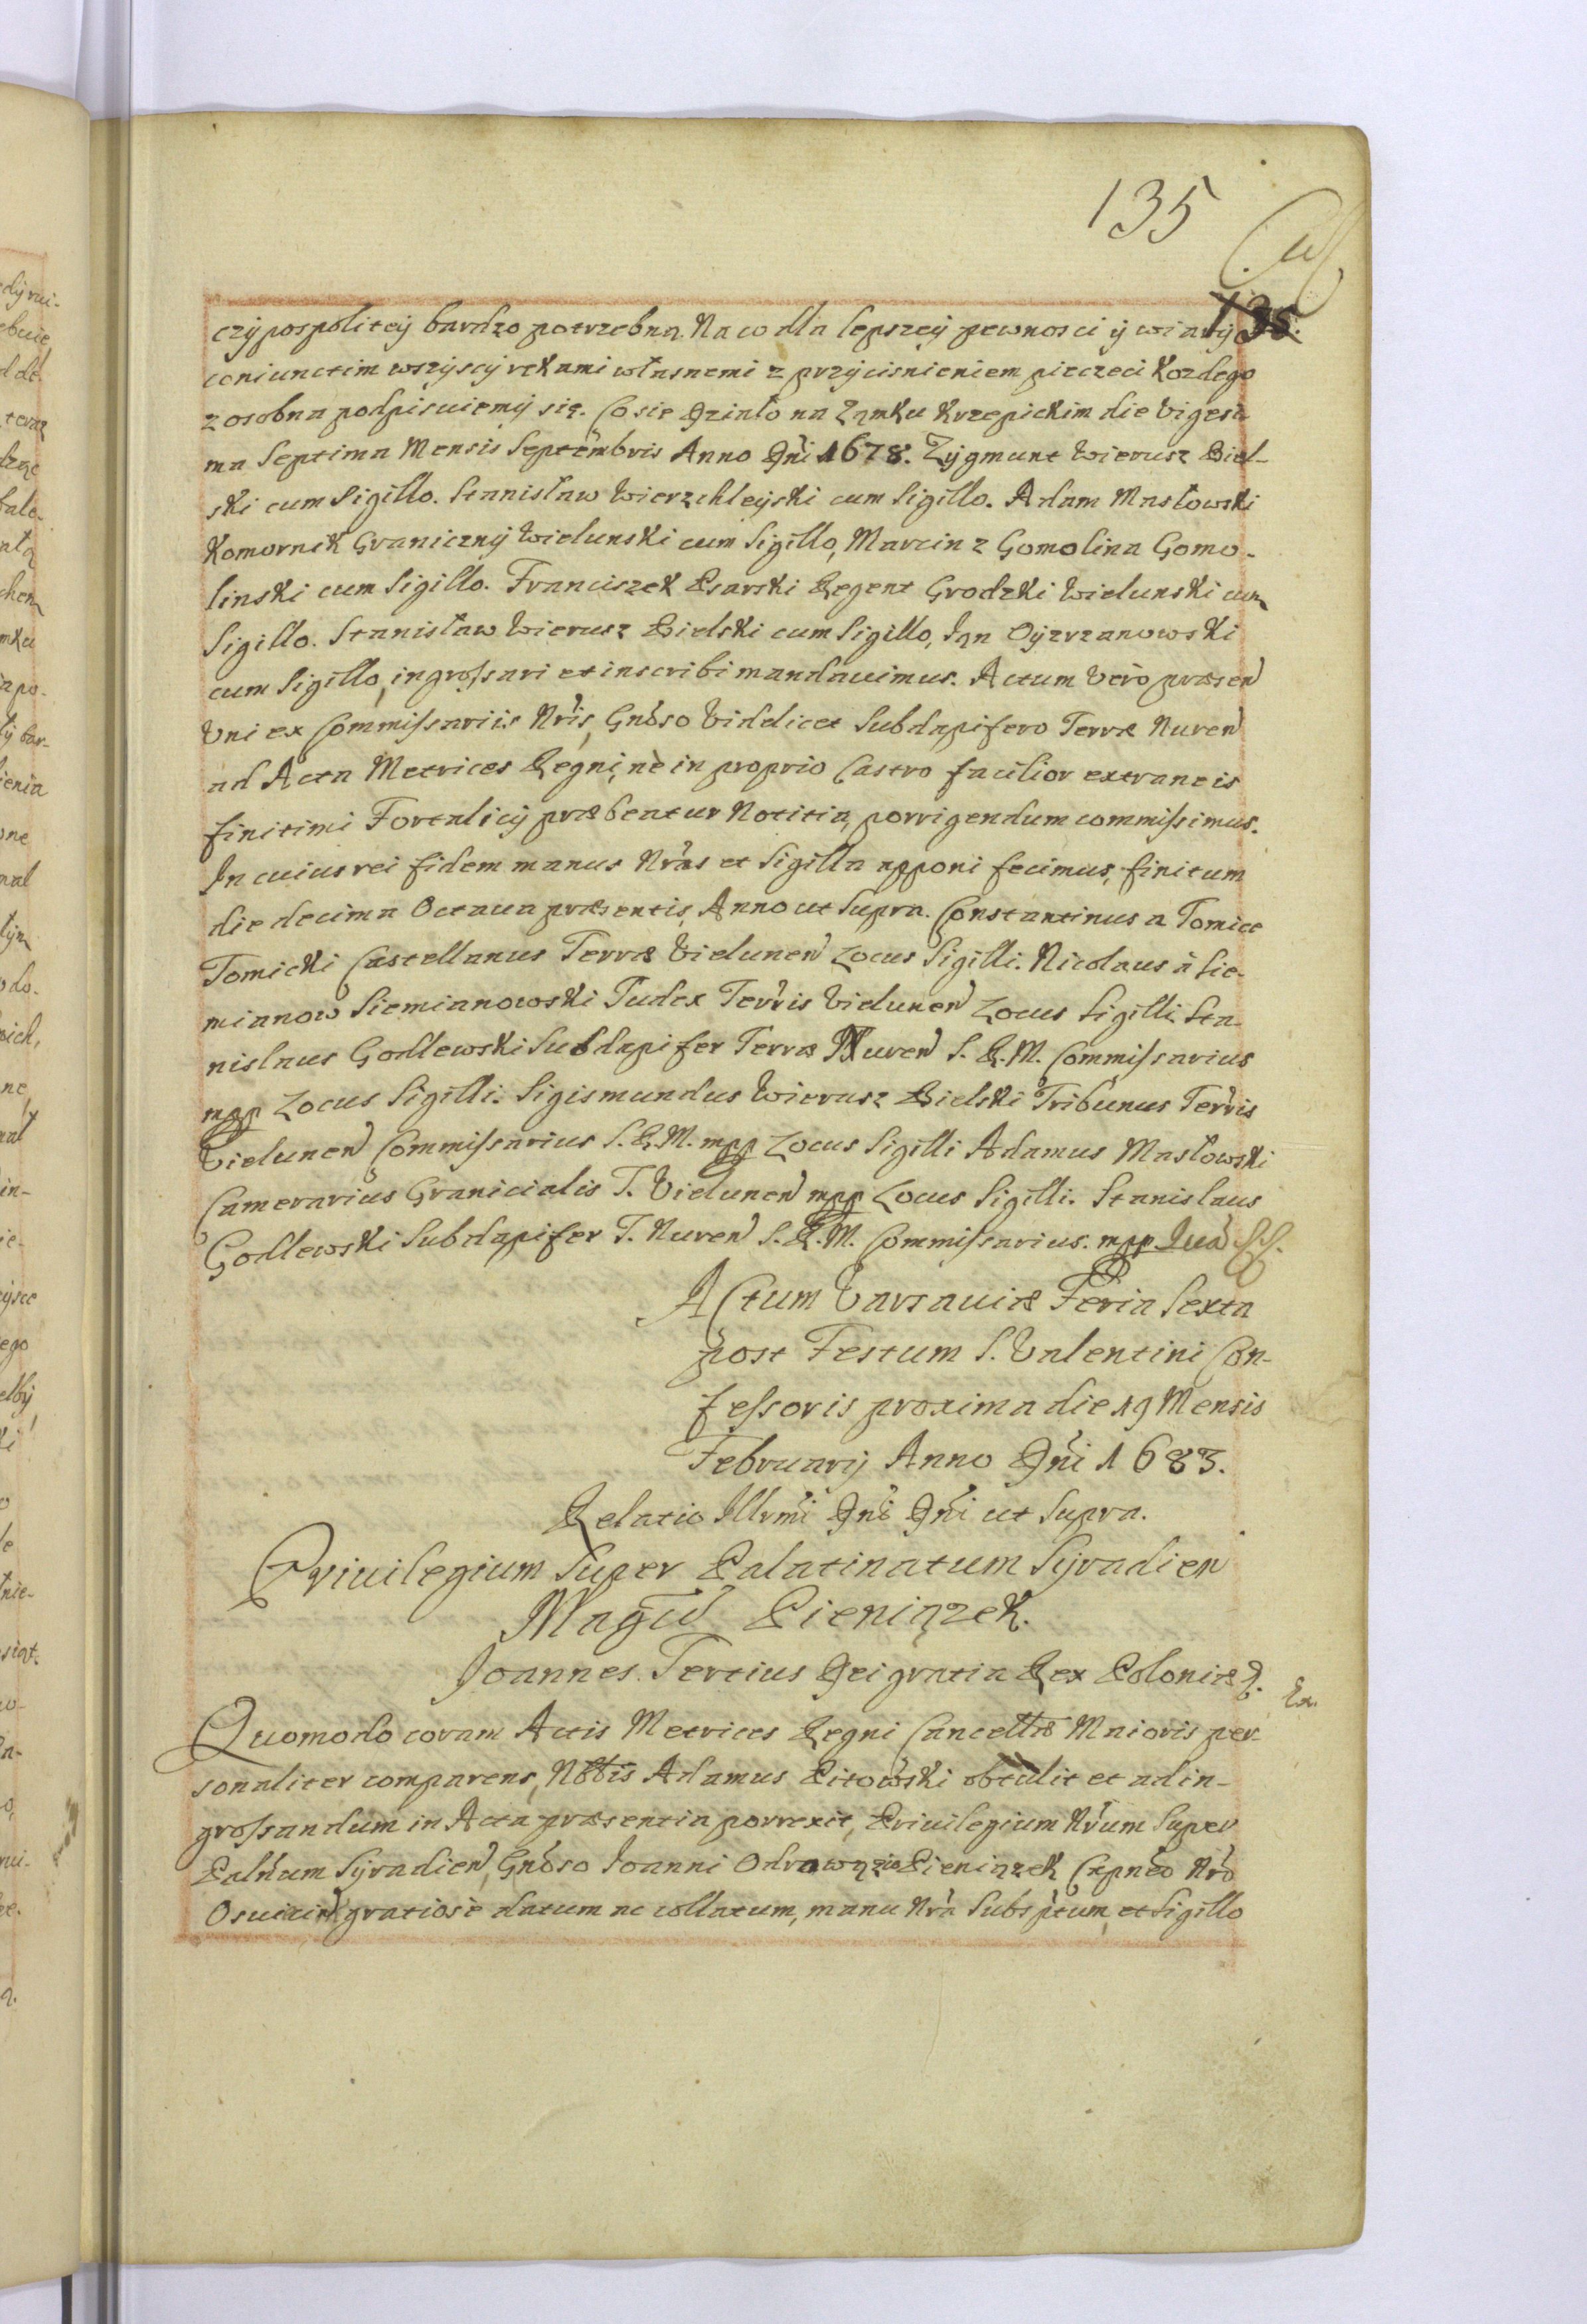 135
135.
czypospolitey bardzo potrzebną. Na co dla lepszey pewnosci ÿ wiary
coniunctim wszÿscÿ rekami własnemi z przÿcisnieniem pieczeci kozdego
z osobna podpisuiemÿ się. Co sie działo na Zamku Krzepickim die Vigesi
ma Septima Mensis Septembris Anno Dni 1678. Zÿgmunt Wierusz Biel-
ski cum Sigillo. Stanisław Wierzchleÿski cum Sigillo. Adam Masłowski
Komornik Granicznÿ Wielunski cum Sigillo, Marcin z Gomolina Gomo-
linski cum Sigillo. Franciszek Psarski Regent Grodzki Wielunski cum
Sigillo. Stanisław Wierusz Bielski cum Sigillo, Jan Oÿzrzanowski
cum Sigillo, ingrossari et inscribi mandauimus. Actum verò præsen
Vni ex Commissariis Nris, Gnoso Videlicet Subdapifero Terræ Nuren
ad Acta Metrices Regni, nè in proprio Castro facilior extraneis
finitimi Fortalicÿ præbeatur Notitia, porrigendum commissimus.
In cuius rei fidem manus Nras et Sigilla apponi fecimus, finitum
die decima Octaua præsentis, Anno ut Supra. Constantinus a Tomice
Tomicki Castellanus Terræ Vielunen Locus Sigilli. Nicolaus à Sie-
mianow Siemianowski Judex Terris Vielunen Locus Sigilli. Sta-
nislaus Godlewski Subdapifer Terræ Nuren S. R. M. Commissarius
mpp Locus Sigilli. Sigismundus Wierusz Bielski Tribunus Terris
Vielunen Commissarius S. R. M. mpp Locus Sigilli Adamus Masłowski
Camerarius Granicialis T. Vielunen mpp Locus Sigilli. Stanislaus
Godlewski Subdapifer T. Nuren S. R. M. Commissarius. mpp
Actum Varsauiæ Feria Sexta
post Festum S. Valentini Con-
fessoris proxima die 19 Mensis
Februarÿ Anno Dni 1683.
Relatio Illrmi Dni Dni ut Supra.
Priuilegium Super Palatinatum Sÿradien
Magco Pieniążek.
Joannes Tertius Dei gratia Rex Poloniæ &.
Quomodo coram Actis Metrices Regni Cancellæ Maioris per-
sonaliter comparens, Nobis Adamus Pitowski obtulit et ad in-
grossandum in Acta præsentia porrexit, Priuilegium Nrum Super
Palnum Sÿradien, Gnoso Joanni Odrowąz Pieniązek Capneo Nro
Osuicin gratiosè datum ac collatum, manu Nra Subsptum, et Sigillo